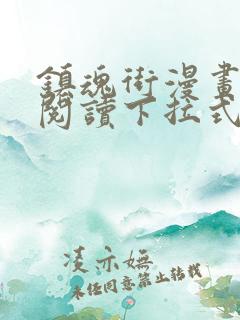 鎮魂街漫畫
閱讀下拉式
凌亦嫵
未經同意禁止轉載